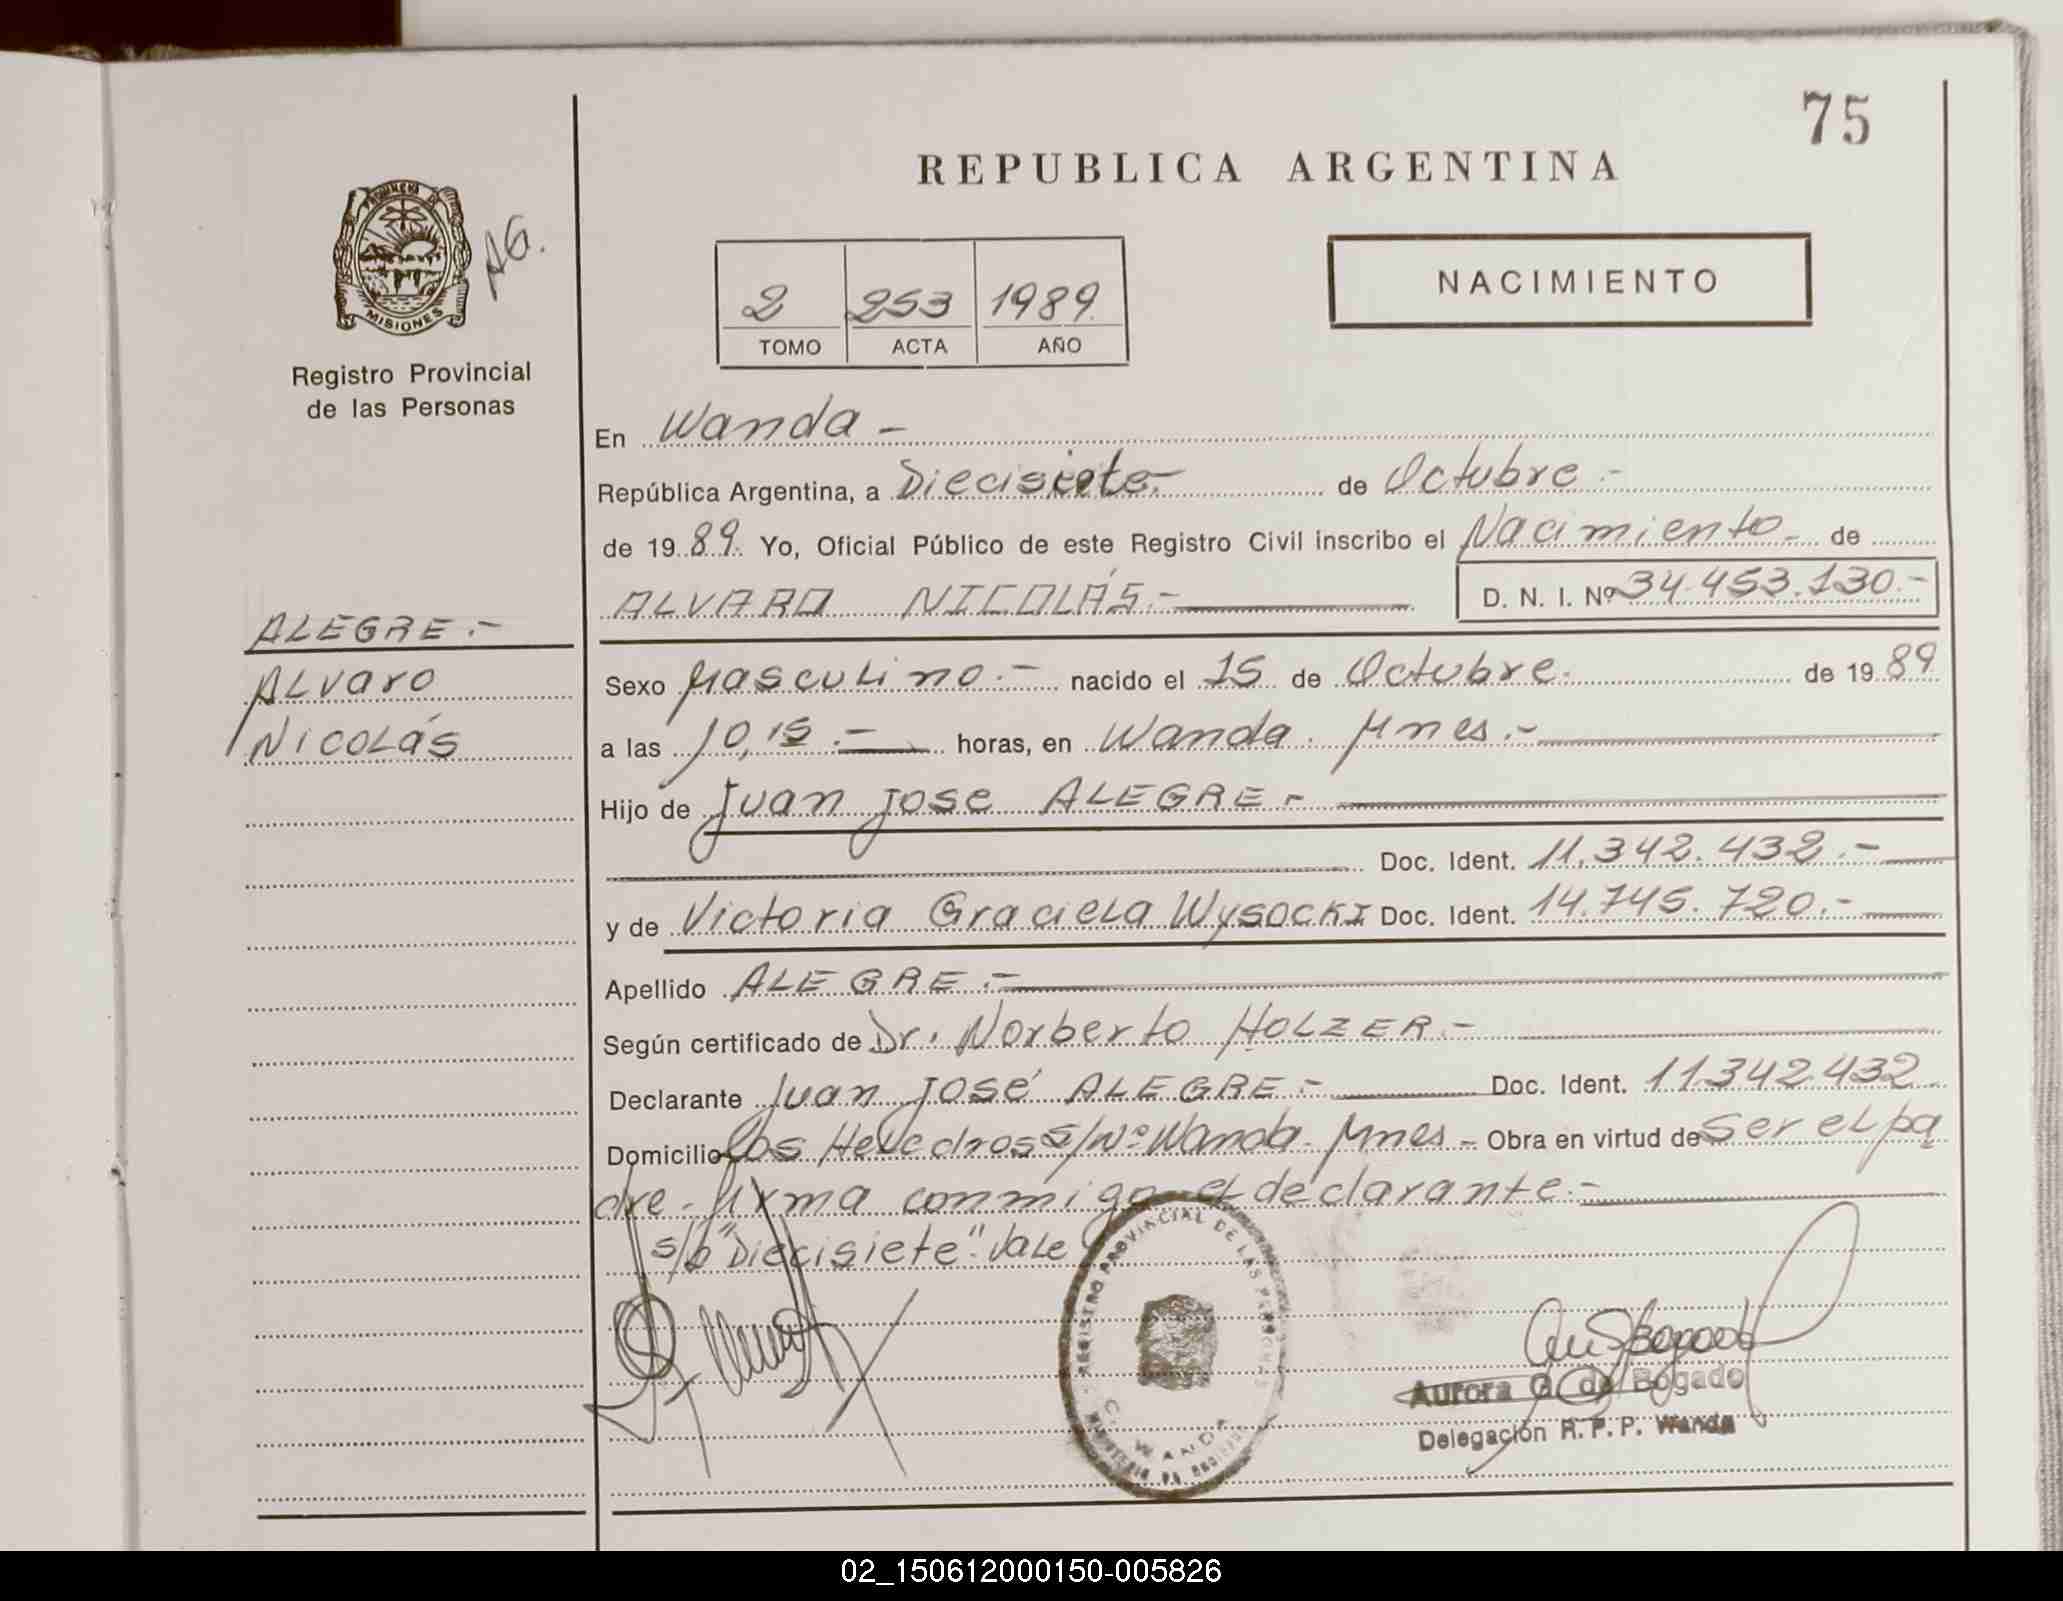 75
REPUBLICA ARGENTINA
PROVINCIA DE
MISIONES
AG.
Registro Provincial
de las Personas
2 253 1989
TOMO ACTA AÑO
NACIMIENTO
En Wanda -
República Argentina, a Diecisiete- de Octubre -
de 1989. Yo, Oficial Público de este Registro Civil inscribo el Nacimiento - de
ALVARO NICOLÁS.- D. N. I. Nº 34.453.130.-
ALEGRE.-
Alvaro
Nicolás
Sexo Masculino.- nacido el 15 de Octubre. de 1989
a las 10,15.- horas, en Wanda. Mnes.-
Hijo de Juan Jose ALEGRE-
Doc. Ident. 11.342.432.-
y de Victoria Graciela Wysocki Doc. Ident. 14.745.720.-
Apellido ALEGRE.-
Según certificado de Dr. Norberto HOLZER.-
Declarante Juan José ALEGRE.- Doc. Ident. 11342432
Domicilio los Helechos s/nº Wanda. Mnes - Obra en virtud de ser el pa
dre. firma conmigo el declarante.-
s/b "Diecisiete". Vale
REGISTRO PROVINCIAL DE LAS PERSONAS
WANDA
Aurora G. de Bogado
Delegación R. P. P. Wanda
02_150612000150-005826